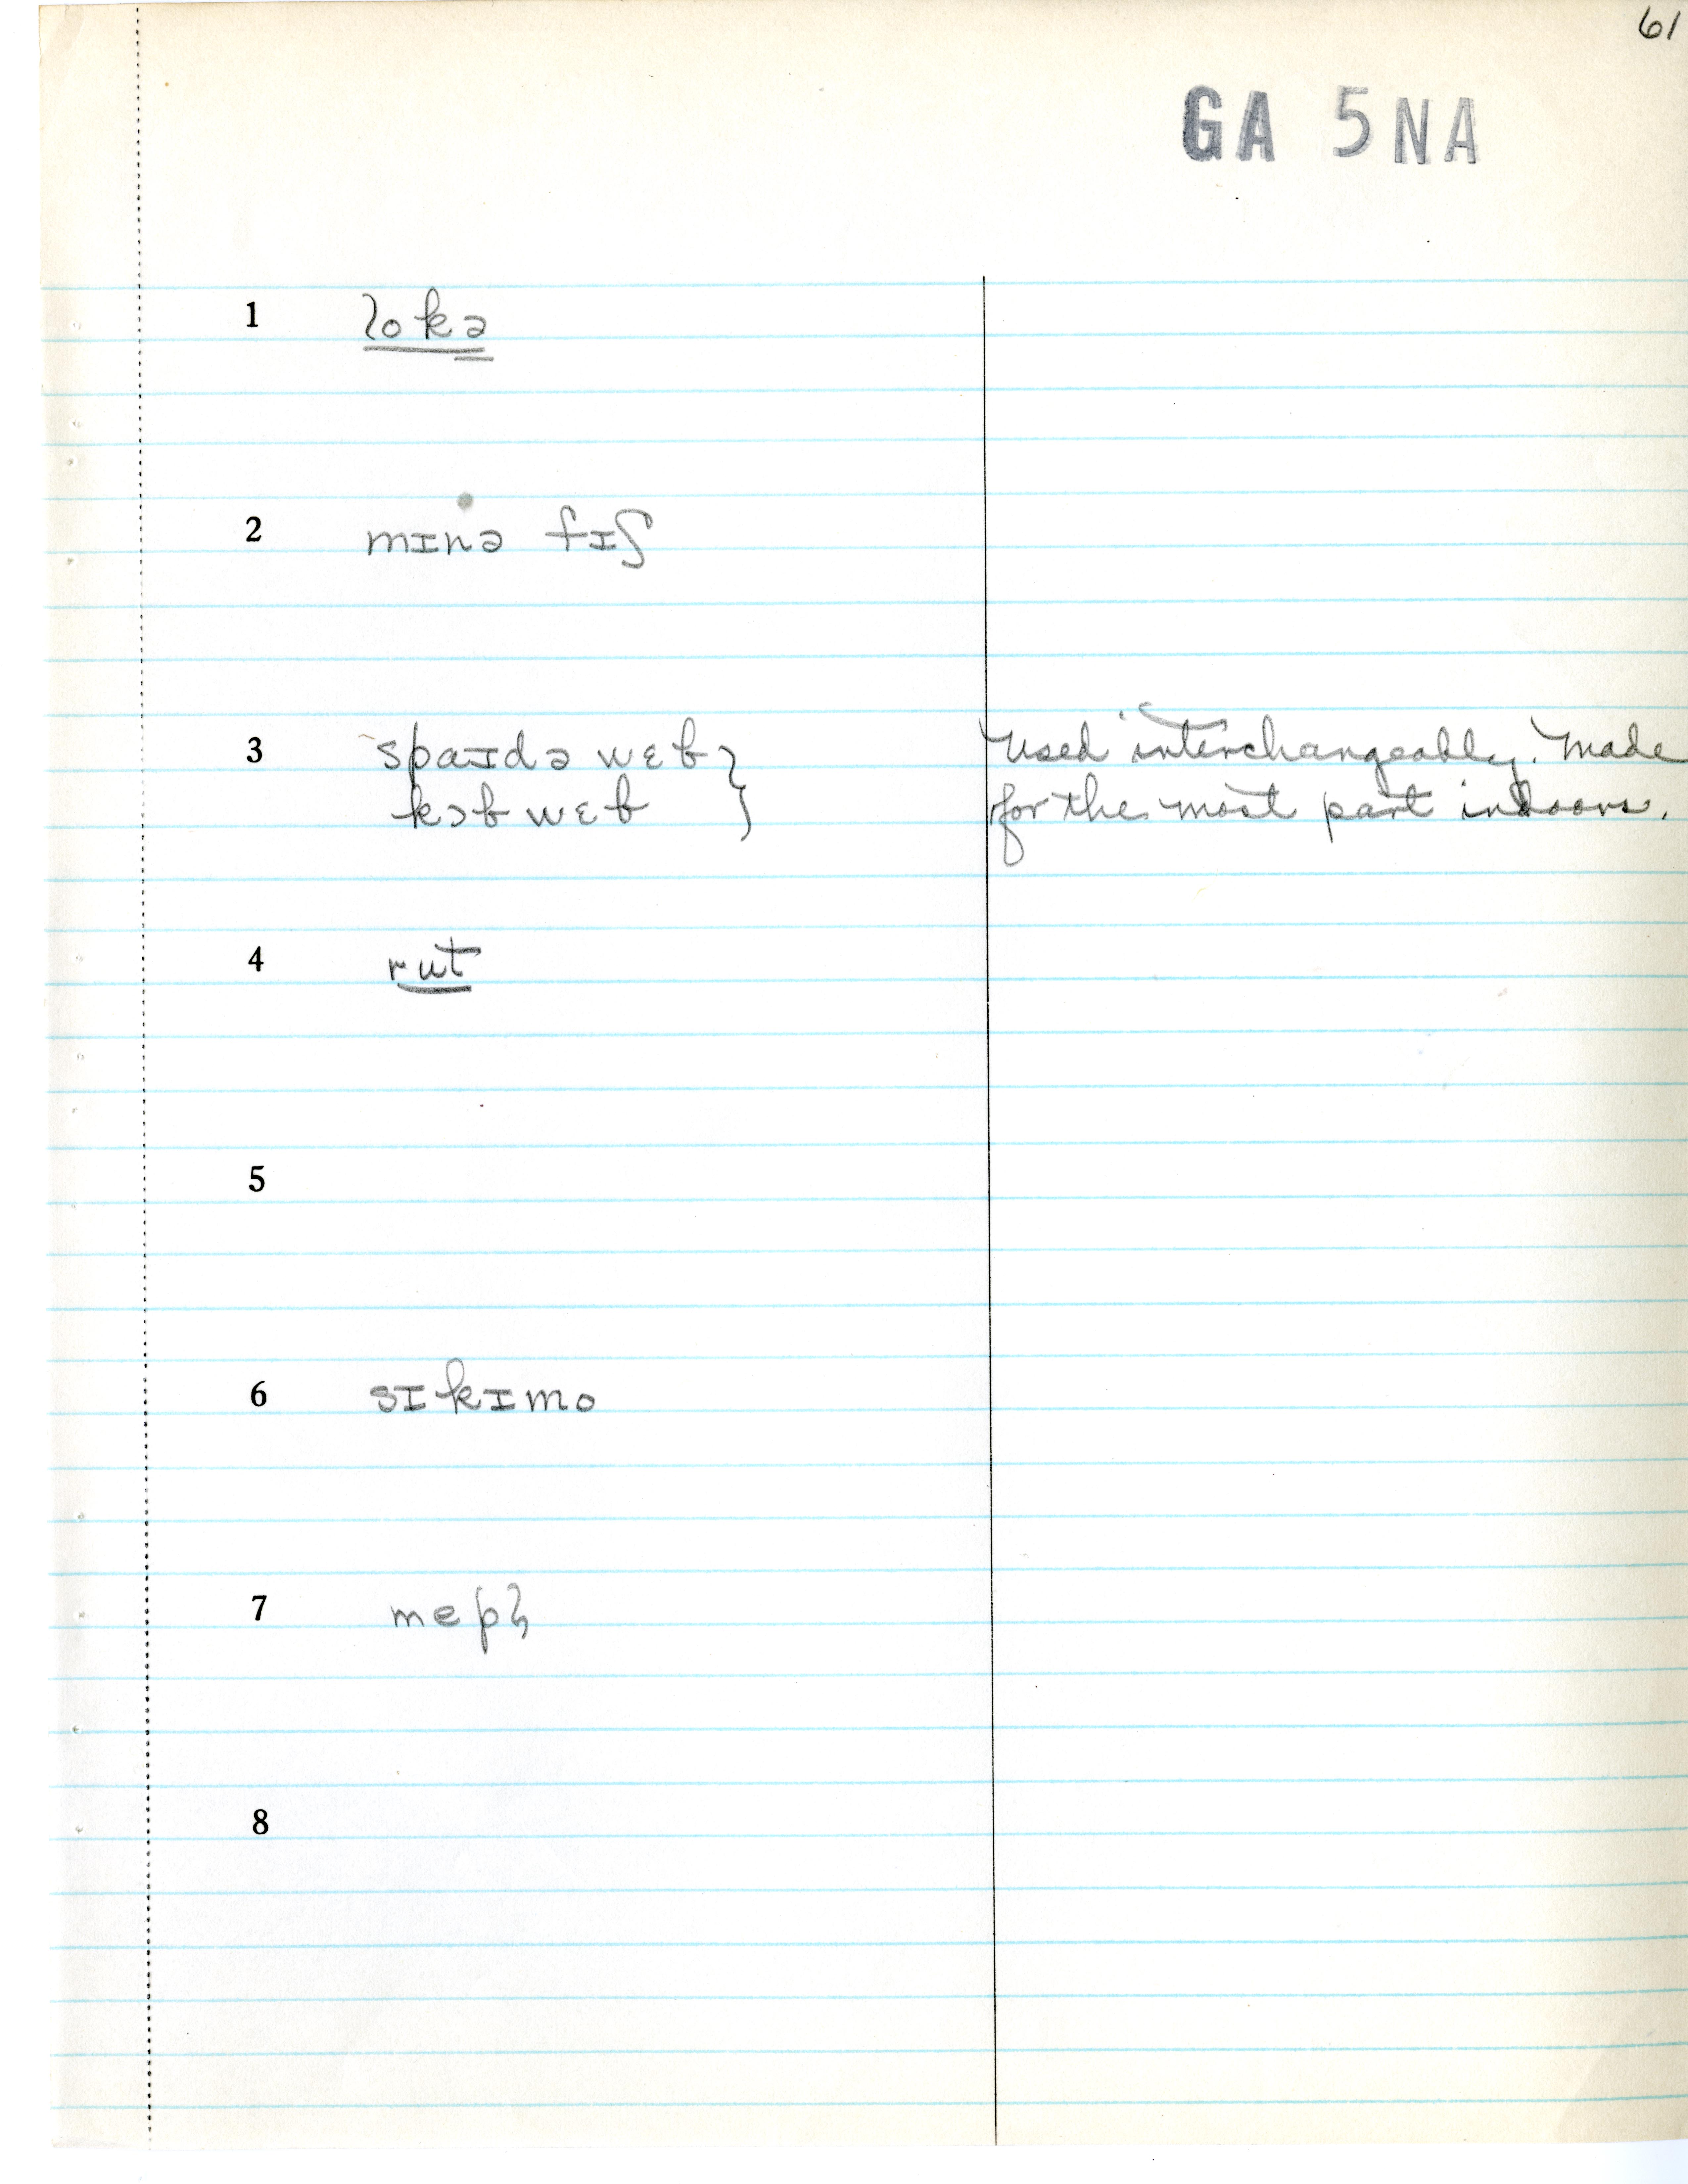 61
GA 5NA
1 lokə
2 mɪnə fɪʃ
3 spaɪdə wɛb } Used interchangeably. Made
kɔb wɛb for the most part indoors.
4 rut
5
6 sɪkɪmo
7
8